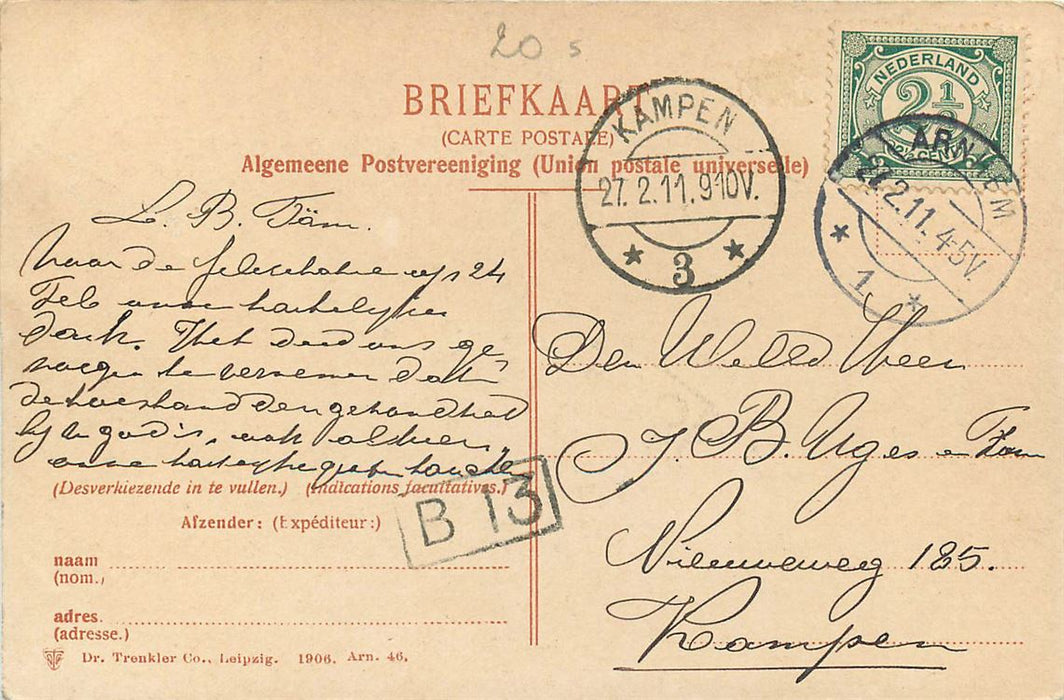 20 s
BRIEFKAART
(CARTE POSTALE)
Algemeene Postvereeniging (Union postale universelle)
NEDERLAND
2½
2½ CENT
KAMPEN
27. 2. 11. 9-10V.
3
ARNHEM
27. 2. 11. 4-5V.
1
L. B. Fam.
Voor de felicitatie op 24
Feb onze hartelijke
dank. Het deed ons ge
noegen te vernemen dat
de toestand der gezondheid
bij u goed is, ook alhier
onze hartelijke groeten
(Desverkiezende in te vullen.) (Indications facultatives.)
B 13
Afzender: (Expéditeur:)
naam
(nom.)
adres.
(adresse.)
Dr. Trenkler Co., Leipzig. 1906. Arn. 46.
Den WelEd Heer
J. B. Uges en Fam
Nieuweweg 185.
Kampen